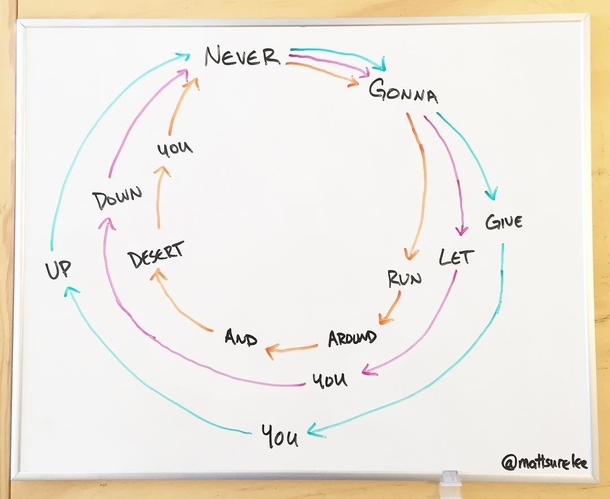 NEVER
GONNA
GIVE
LET
RUN
AROUND
AND
DESERT
YOU
YOU
DOWN
YOU
UP
@mattsurelee